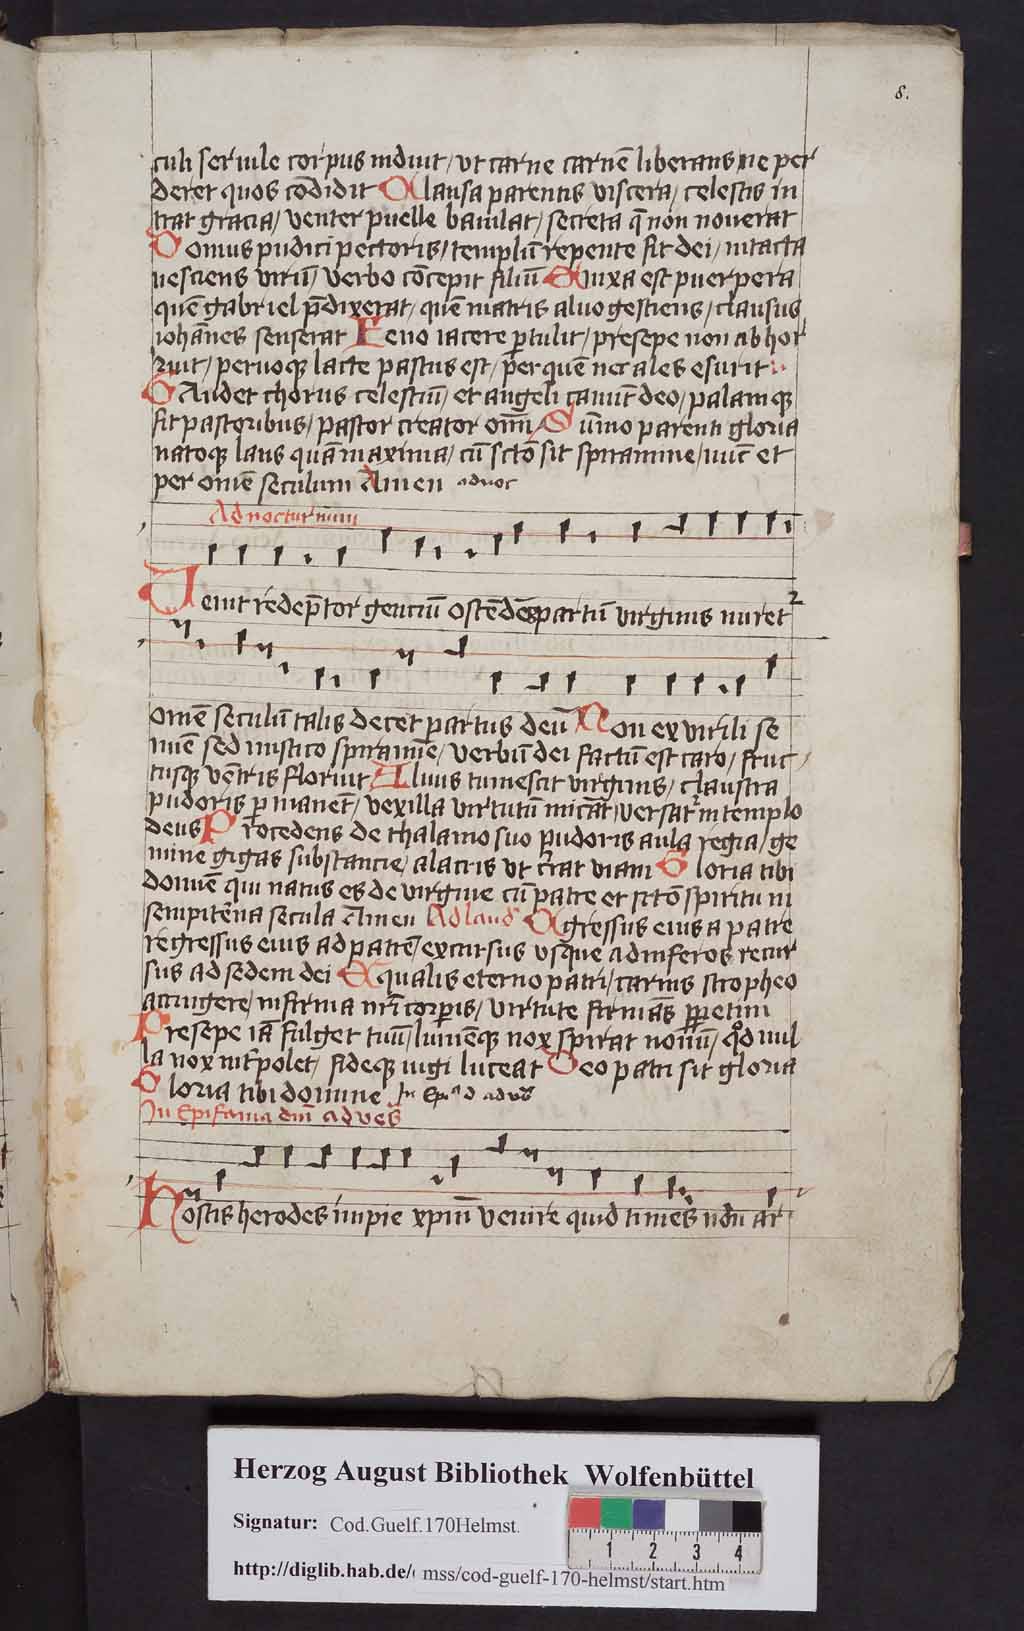 8.
culi seruile corpus induit / vt carne carnē liberans ne per
deret quos cōdidit Clausa parentis viscera / celestis in
trat gracia / venter puelle baiulat / secreta q̄ non nouerat
Domus pudici pectoris / templū repente fit dei / intacta
nesciens virū / verbo cōcepit filiū Enixa est puerpera
quē gabriel p̄dixerat / quē matris aluo gestiens / clausus
iohānes senserat Feno iacere ptulit / presepe non abhor
ruit / paruoqȝ lacte pastus est / per quē nec ales esurit
GAudet chorus celestiū / et angeli canūt deo / palamqȝ
fit pastoribus / pastor creator oīm Summo parenti gloria
natoqȝ laus quā maxima / cū scto sit spiramine / nūc et
per omē seculum Amen ad noc
Ad nocturnum
Ueni redēptor genciū ostēde partū virginis miret
omē seculū talis decet partus deū Non ex virili se
mīe sed mistico spiramīe / verbū dei factū est caro / fruc
tusqȝ vētris floruit Aluus tumescit virginis / claustra
pudoris pmanēt / vexilla virtutū micāt / versat in templo
deus Procedens de thalamo suo pudoris aula regia / ge
mine gigas substancie / alacris vt crat viam Gloria tibi
domīe qui natus es de virgine cū patre et scto spiritu in
sempitna secula Amen Ad laud Egressus eius a patre
regressus eius ad patrē / excursus vsque ad inferos recur
sus ad sedem dei Equalis eterno patri / carnis stropheo
accingere / infirma nr̄i corpis / virtute firmās ppetim
Presepe iā fulget tuū / lumēqȝ nox spirat nouū / qd nul
la nox intpolet / fideqȝ iugi luceat Deo patri sit gloria
Gloria tibi domine
In Epifania dni ad ves
Hostis herodes impie xpm venire quid times nōn ar
Herzog August Bibliothek Wolfenbüttel
Signatur: Cod.Guelf.170Helmst.
1 2 3 4
http://diglib.hab.de/ mss/cod-guelf-170-helmst/start.htm